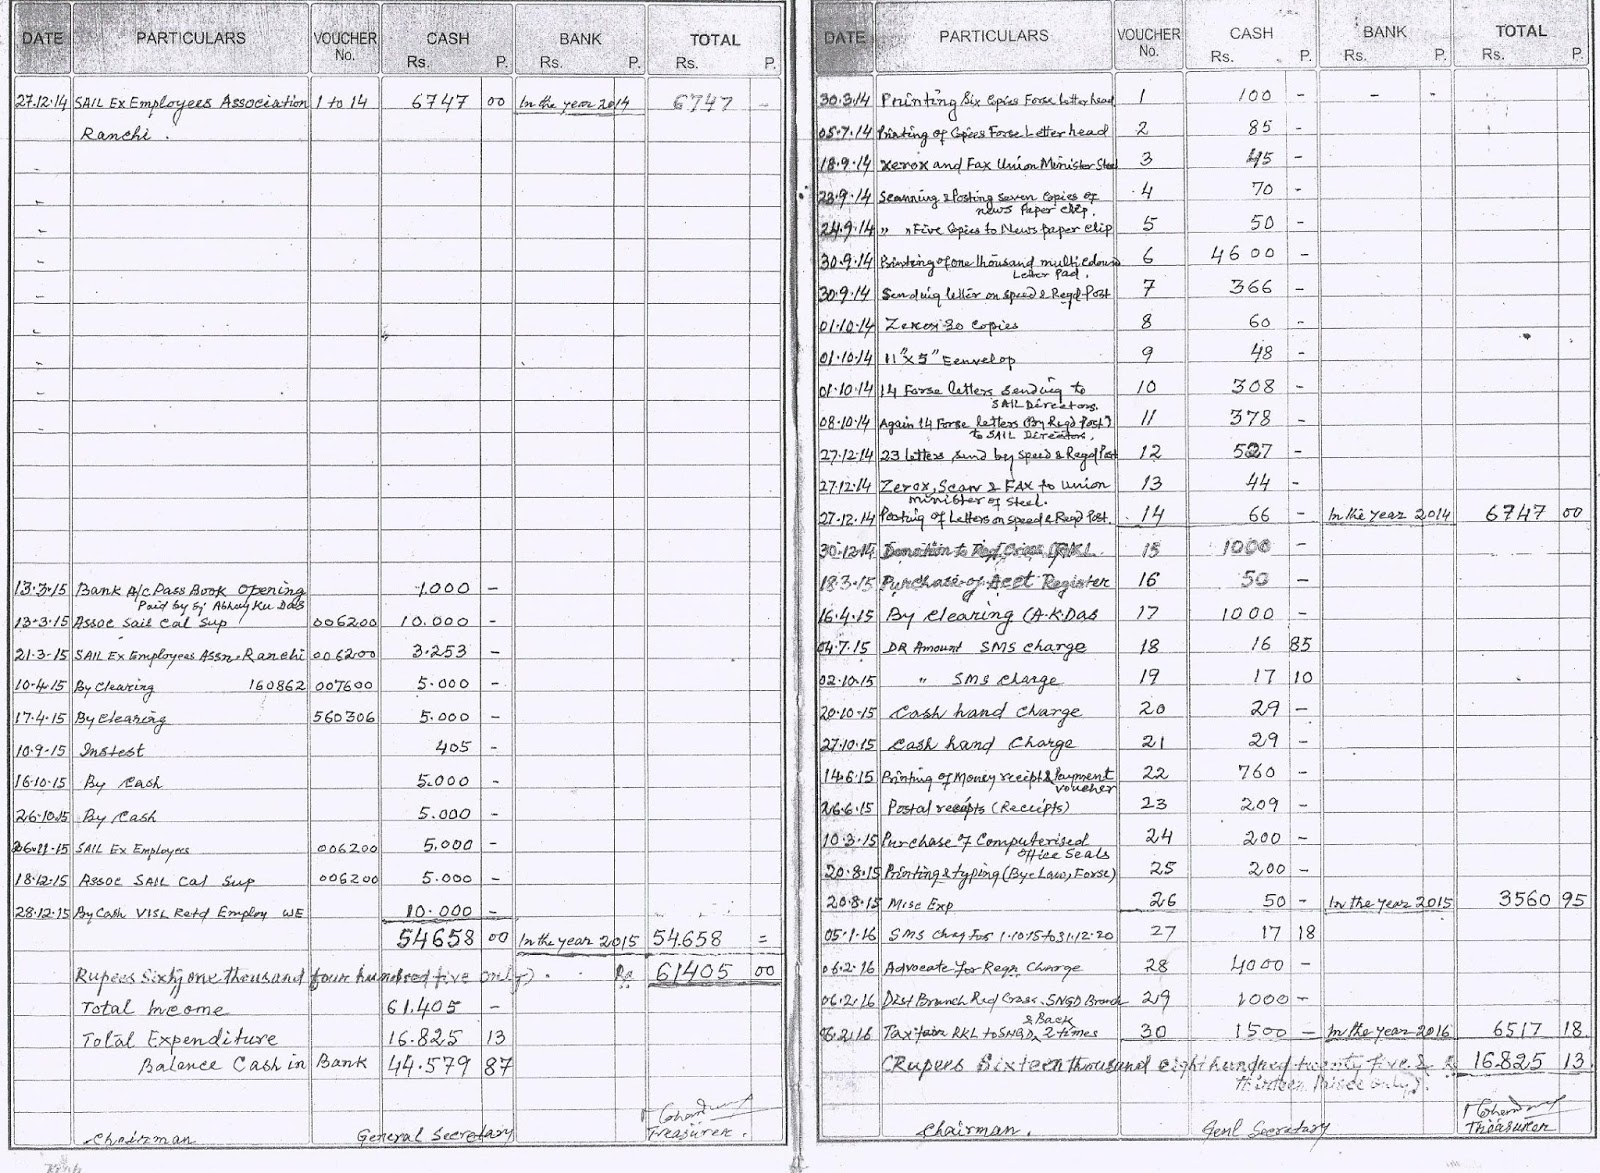 DATE PARTICULARS VOUCHER No. CASH Rs. P. BANK Rs. P. TOTAL Rs. P.
27.12.14 SAIL Ex Employees Association 1 to 14 6747 00 In the year 2014 6747 -
Ranchi.
13.3.15 Bank A/c Pass Book Opening 1.000 -
Paid by Sj Abhay Ku Das
13.3.15 Assoc Sail Cal Sup 006200 10.000 -
21.3.15 SAIL Ex Employees Assn. Ranchi 006200 3.253 -
10.4.15 By Clearing 160862 007600 5.000 -
17.4.15 By Clearing 560306 5.000 -
10.9.15 Instest 405 -
16.10.15 By Cash 5.000 -
26.10.15 By Cash 5.000 -
26.11.15 SAIL Ex Employees 006200 5.000 -
18.12.15 Assoc SAIL Cal Sup 006200 5.000 -
28.12.15 By Cash VISL Retd Employ WE 10.000 -
54658 00 In the year 2015 54.658 =
Rupees Sixty one thousand four hundred five only) Rs 61405 00
Total Income 61.405 -
Total Expenditure 16.825 13
Balance Cash in Bank 44.579 87
Chairman General Secretary Treasurer.
DATE PARTICULARS VOUCHER No. CASH Rs. P. BANK Rs. P. TOTAL Rs. P.
30.3.14 Printing Six Copies Forse Letter head 1 100 - - -
05.7.14 Printing of Copies Forse Letter head 2 85 -
18.9.14 Xerox and Fax Union Minister Steel 3 45 -
23.9.14 Scanning & Posting Seven Copies of 4 70 -
news Paper Clip.
24.9.14 " " Five Copies to News paper clip 5 50 -
30.9.14 Printing of one thousand multi colour 6 4600 -
Letter Pad.
30.9.14 Sending letter on speed & Regd Post 7 366 -
01.10.14 Zerox 30 Copies 8 60 -
01.10.14 11" x 5" Eenvelop 9 48 -
01.10.14 14 Forse letters sending to 10 308 -
SAIL Directors.
08.10.14 Again 14 Forse letters (By Regd Post) 11 378 -
to SAIL Director.
27.12.14 23 letters send by speed & Regd Post 12 527 -
27.12.14 Zerox, Scan & FAX to Union 13 44 -
minister of Steel.
27.12.14 Posting of Letters on speed & Regd Post. 14 66 - In the year 2014 6747 00
30.12.15 Donation to Red Cross (RKL 15 1000 -
18.3.15 Purchase of Acct Register 16 50 -
16.4.15 By Clearing (A.K Das 17 1000 -
04.7.15 DR Amount SMS charge 18 16 85
02.10.15 " SMS Charge 19 17 10
20.10.15 Cash hand Charge 20 29 -
27.10.15 Cash hand Charge 21 29 -
14.6.15 Printing of Money receipt & Payment 22 760 -
voucher
26.6.15 Postal receipts (Receipts) 23 209 -
10.3.15 Purchase of Computerised 24 200 -
office Seals
20.8.15 Printing & typing (Bye Law, Forse) 25 200 -
20.8.15 Misc Exp 26 50 - In the year 2015 3560 95
05.1.16 SMS Chag For 1.10.15 to 31.12.20 27 17 18
06.2.16 Advocate for Regn. Charge 28 4000 -
06.2.16 Dist Branch Red Cross. SNGD Branch 29 1000 -
& Back
06.2.16 Tax RKL to SNGD, 2 times 30 1500 - In the year 2016 6517 18
(Rupees Sixteen thousand eight hundred twenty five & 16.825 13
thirteen paise only).
Chairman. Genl Secretary Treasurer